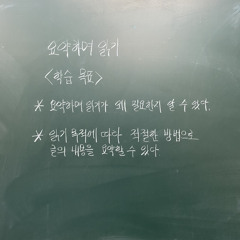 요약하며 읽기
<학습 목표>
* 요약하며 읽기가 왜 필요한지 알 수 있다.
* 읽기 목적에 따라 적절한 방법으로
글의 내용을 요약할 수 있다.